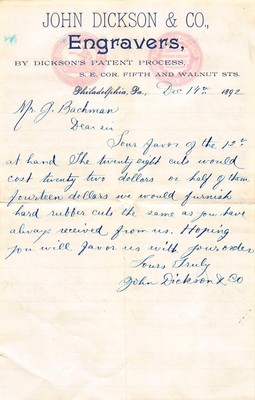 JOHN DICKSON & CO.,
Engravers,
BY DICKSON'S PATENT PROCESS,
S. E. COR. FIFTH AND WALNUT STS.
Philadelphia, Pa., Dec 14th 1892
Mr. J. Bachman
Dear sir
Your favor of the 12th
at hand The twenty eight cuts would
cost twenty two dollars or half of them
fourteen dollars we would furnish
hard rubber cuts the same as you have
always received from us. Hoping
you will favor us with your order
Yours Truly
John Dickson & Co